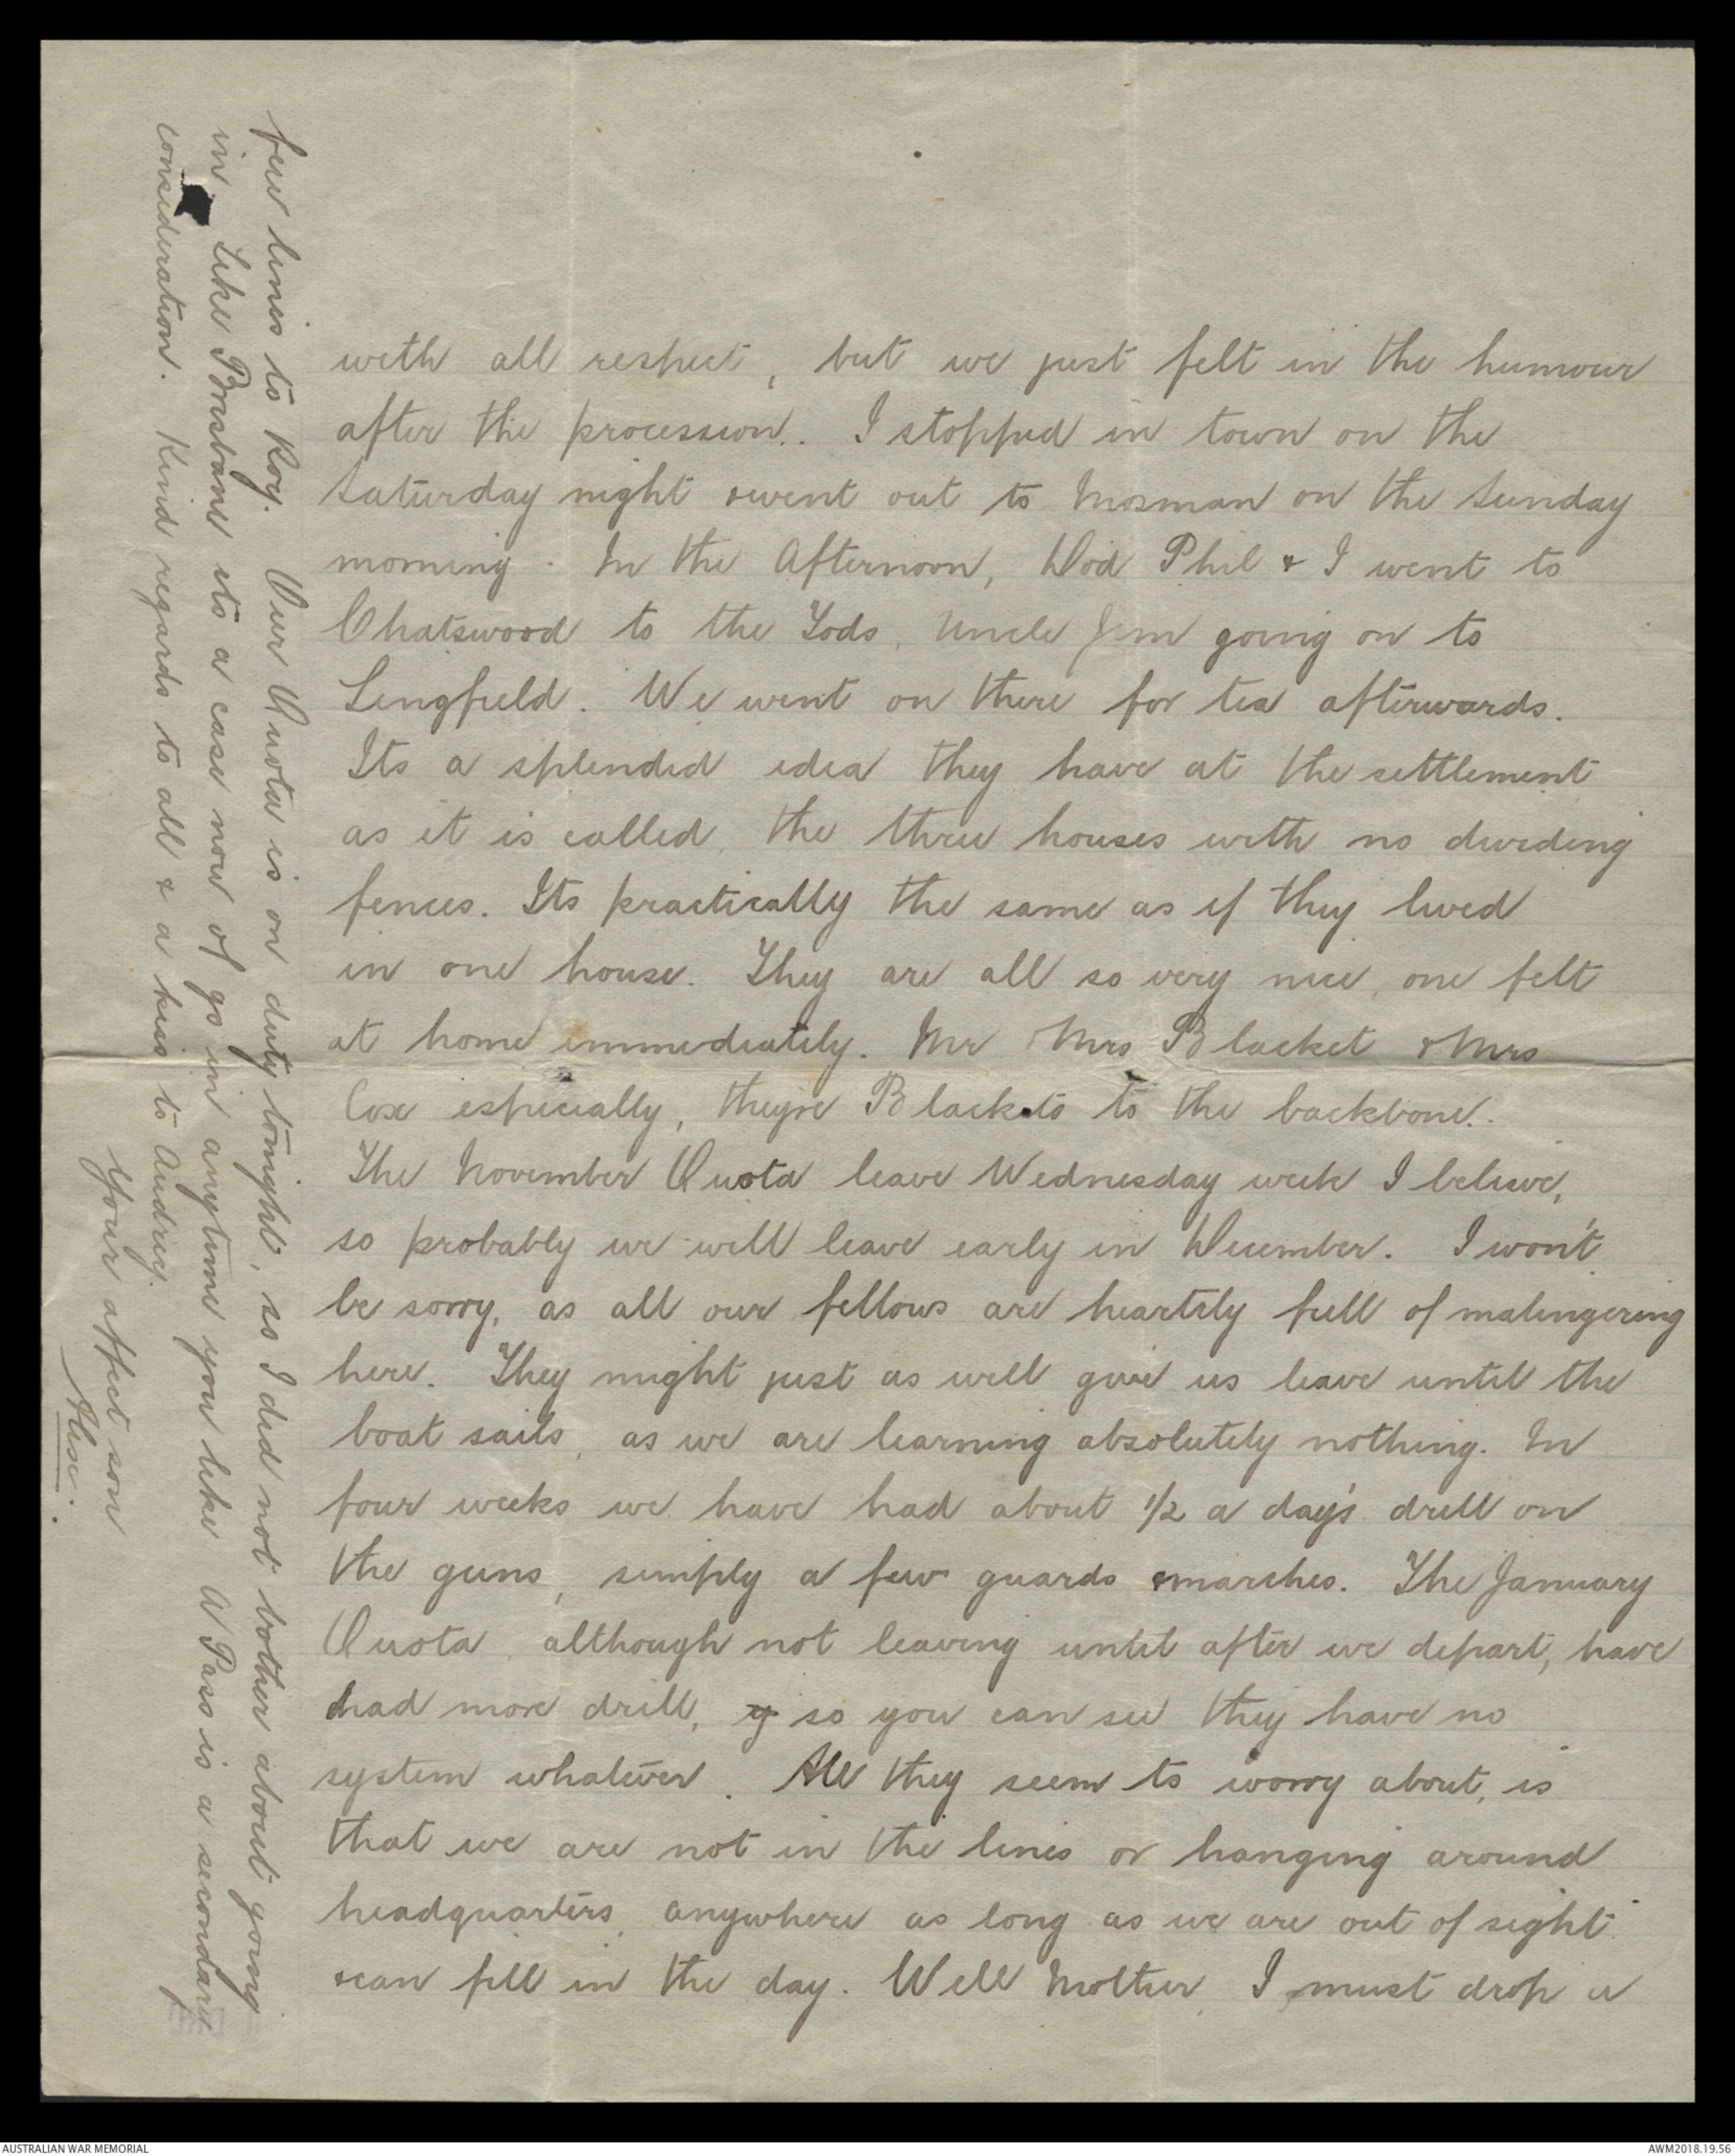 with all respect, but we just felt in the humour
after the procession. I stopped in town on the
Saturday night & went out to Mosman on the Sunday
morning. In the Afternoon, Dod Phil & I went to
Chatswood to the Yods, Uncle Jim going on to
Lingfield. We went on there for tea afterwards.
Its a splendid idea they have at the settlement
as it is called, the three houses with no dividing
fences. Its practically the same as if they lived
in one house. They are all so very nice, one felt
at home immediately. Mr & Mrs Blacket & Mrs
Cox especially, they're Blackets to the backbone.
The November Quota leave Wednesday week I believe,
so probably we will leave early in December. I won't
be sorry, as all our fellows are heartily full of malingering
here. They might just as well give us leave until the
boat sails, as we are learning absolutely nothing. In
four weeks we have had about 1/2 a day's drill on
the guns, simply a few guards & marches. The January
Quota, although not leaving until after we depart, have
had more drill, so you can see they have no
system whatever. All they seem to worry about, is
that we are not in the lines or hanging around
headquarters, anywhere as long as we are out of sight
& can fill in the day. Well Mother, I must drop a
few lines to Roy. Our Quota is on duty tonight, so I did not bother about going
in. Like Brisbane its a case now of go in anytime you like. A Pass is a secondary
consideration. Kind regards to all & a kiss to Audrey.
Your affect son
Alex.
AUSTRALIAN WAR MEMORIAL
AWM2018.19.56